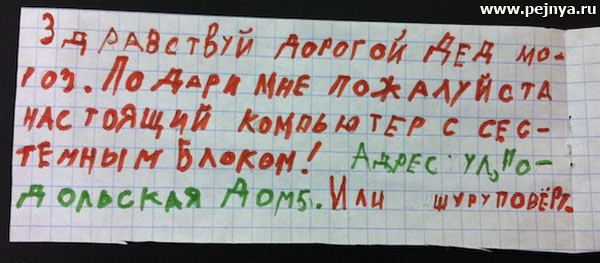 www.pejnya.ru
Здравствуй дорогой Дед Мо-
роз. Подари мне пожалуйста
настоящий компьютер с сес-
темным блоком! Адрес ул, По-
дольская дом 5. Или шуруповёрт.